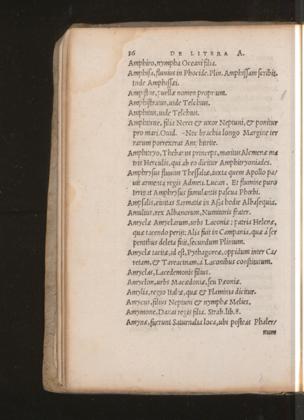 36 DE LITERA A.
Amphiro, nympha Oceani filia.
Amphisa, fluuius in Phocide. Plin. Amphissam scribit,
inde Amphissei.
puellæ nomen proprium.
Amphistratus, uide Telchius.
Amphitus, uide Telchius.
Amphitrite, filia Nerei & uxor Neptuni, & ponitur
pro mari. Ouid. Nec brachia longo Margine ter
rarum porrexerat Amphitrite.
Amphitryo, Thebarum princeps, maritus Alcmenæ ma
tris Herculis, qui ab eo dicitur Amphitryoniades.
Amphrysus fluuius Thessaliæ, iuxta quem Apollo pa
uit armenta regis Admeti. Lucan. Et flumine puro
Amphrysus famulantis pascua Phœbi.
Ampsalis, ciuitas Sarmatiæ in Asia
Amulius, rex Albanorum, Numitoris frater.
Amyclæ Amyclarum, urbs Laconiæ; patria Helenæ,
quæ tacendo perijt; Alia fuit in Campania, quæ à ser
pentibus deleta fuit, secundum Plinium.
Amyclæ tacitæ, id est, Pythagoreæ, oppidum inter Ca
ietam, & Tarracinam, à Laconibus constitutum.
Amyclas, Lacedemonis filius.
Amyclon, urbs Macedoniæ, seu Pæoniæ.
Amylia, regio Italiæ, quæ & Flaminia dicitur.
Amycus, filius Neptuni & nymphæ Melies.
Amymone, Danai regis filia. Strab. lib. 8.
Amynæ, fuerunt Saturnalia loca, ubi posteà Phaler
num